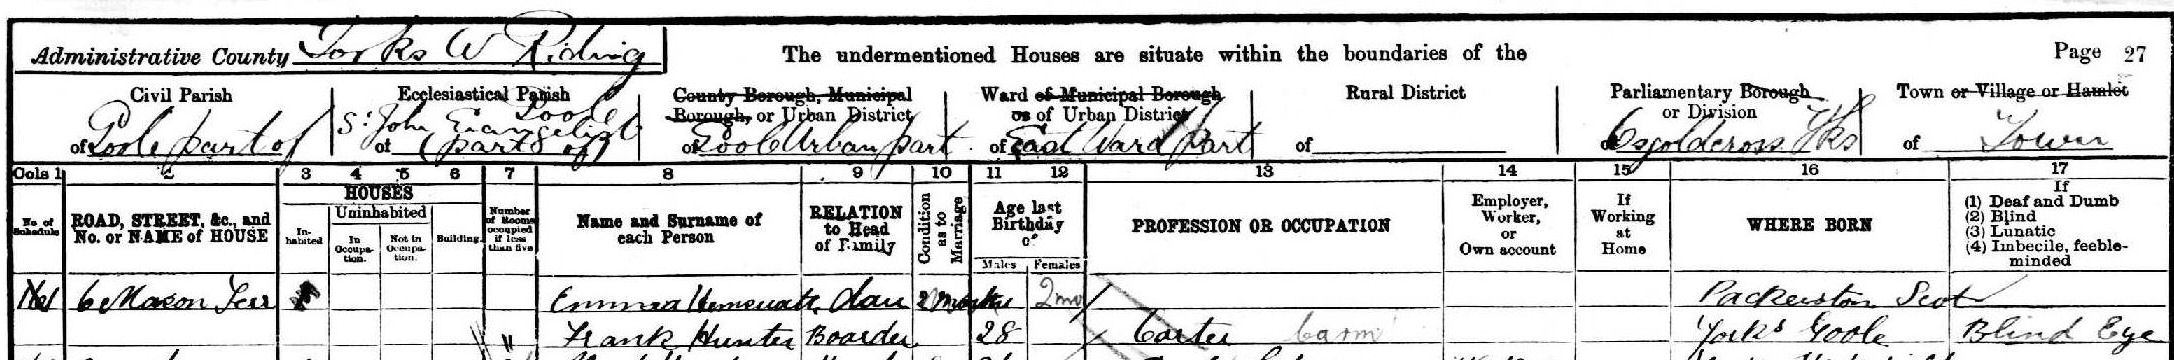 Administrative County Yorks W Riding
The undermentioned Houses are situate within the boundaries of the
Page 27
Civil Parish
of Goole part of
Ecclesiastical Parish
of St John Evangelist Goole (part of)
County Borough, Municipal
Borough, or Urban District
of Goole Urban part
Ward of Municipal Borough
or of Urban District
of East Ward part
Rural District
of
Parliamentary Borough
or Division
of Osgoldcross Yks
Town or Village or Hamlet
of Town
Cols 1 2 3 4 5 6 7 8 9 10 11 12 13 14 15 16 17
No. of Schedule
ROAD, STREET, &c., and
No. or NAME of HOUSE
HOUSES
In-
habited
Uninhabited
In
Occupa-
tion.
Not in
Occupa-
tion.
Building.
Number
of Rooms
occupied
if less
than five
Name and Surname of
each Person
RELATION
to Head
of Family
Condition
as to
Marriage
Age last
Birthday
of
Males Females
PROFESSION OR OCCUPATION
Employer,
Worker,
or
Own account
If
Working
at
Home
WHERE BORN
If
(1) Deaf and Dumb
(2) Blind
(3) Lunatic
(4) Imbecile, feeble-
minded
6 Mason Terr Emma dau 2 mo Scot
Frank Hunter Boarder 28 Carter Yorks Goole Blind Eye